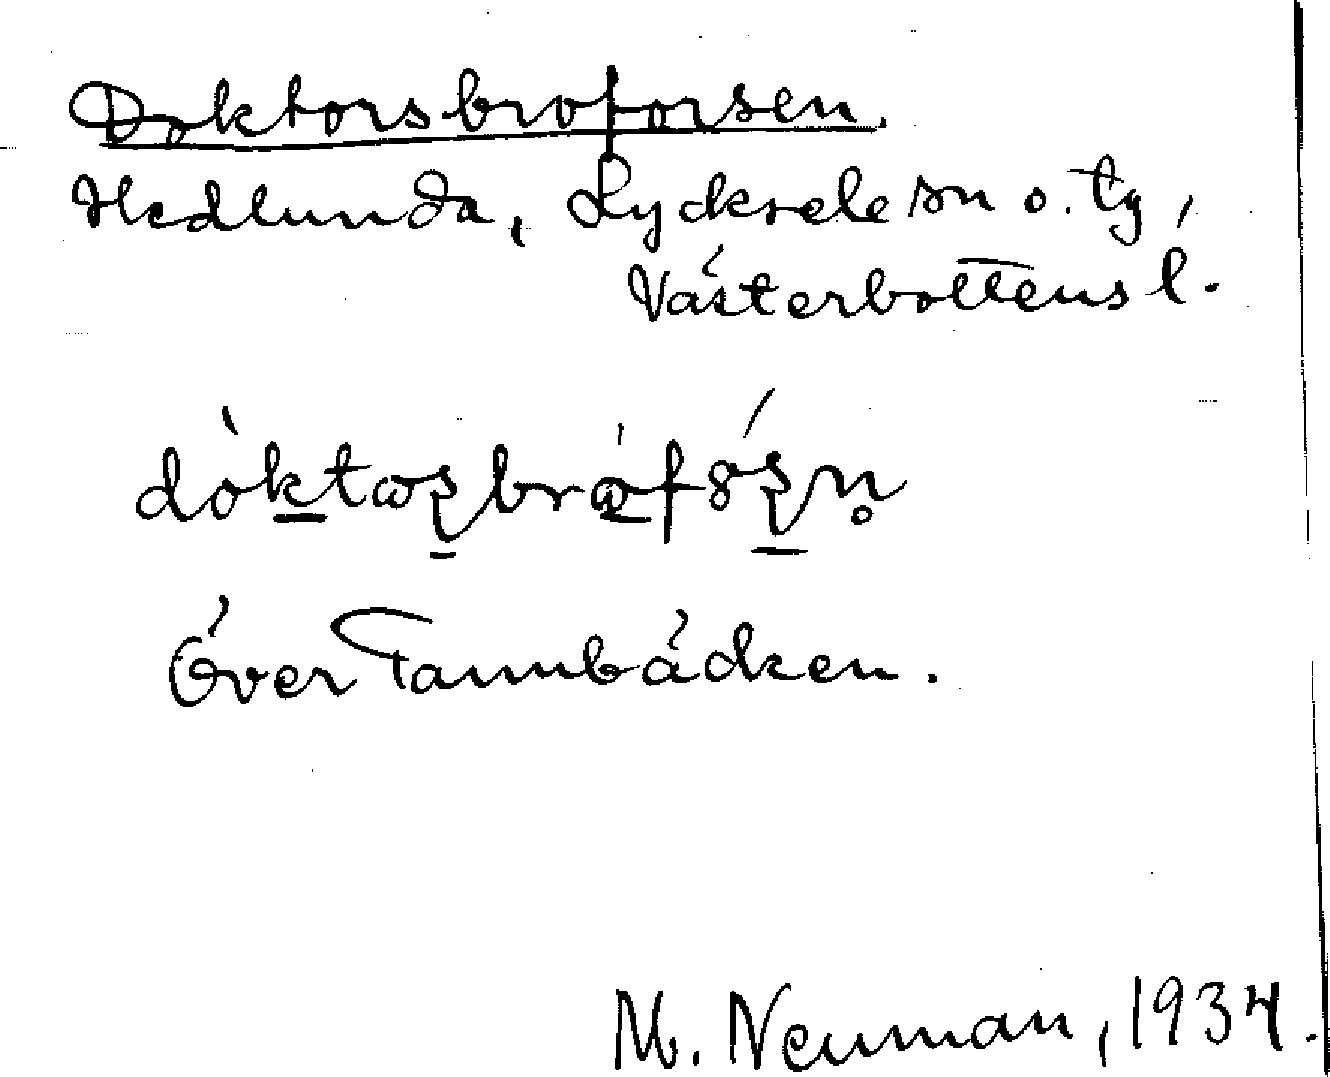 Doktorsbroforsen.
Hedlunda, Lycksele sn o. tg,
Västerbottens l.
Över Tannbäcken.
M. Neuman, 1934.